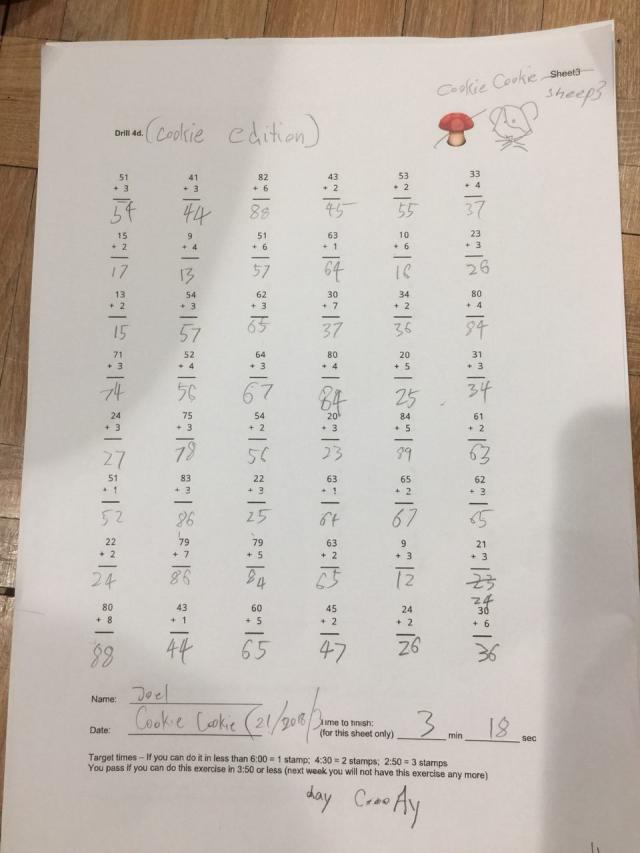 Cookie Cookie Sheet3
sheep3
Drill 4d. (cookie edition)
51 41 82 43 53 33
+ 3 + 3 + 6 + 2 + 2 + 4
54 44 88 45 55 37
15 9 51 63 10 23
+ 2 + 4 + 6 + 1 + 6 + 3
17 13 57 64 16 26
13 54 62 30 34 80
+ 2 + 3 + 3 + 7 + 2 + 4
15 57 65 37 36 84
71 52 64 80 20 31
+ 3 + 4 + 3 + 4 + 5 + 3
74 56 67 84 25 34
24 75 54 20 84 61
+ 3 + 3 + 2 + 3 + 5 + 2
27 78 56 23 89 63
51 83 22 63 65 62
+ 1 + 3 + 3 + 1 + 2 + 3
52 86 25 64 67 65
22 79 79 63 9 21
+ 2 + 7 + 5 + 2 + 3 + 3
24 86 84 65 12 23
24
80 43 60 45 24 30
+ 8 + 1 + 5 + 2 + 2 + 6
88 44 65 47 26 36
Name: Joel
Date: Cookie Cookie (21/2018/3) Time to finish:
(for this sheet only) 3 min 18 sec
Target times – If you can do it in less than 6:00 = 1 stamp; 4:30 = 2 stamps; 2:50 = 3 stamps
You pass if you can do this exercise in 3:50 or less (next week you will not have this exercise any more)
day